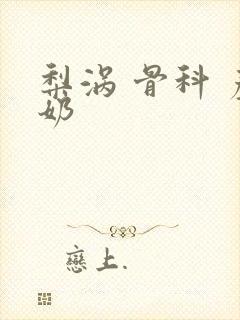 梨涡 骨科
奶
戀上.